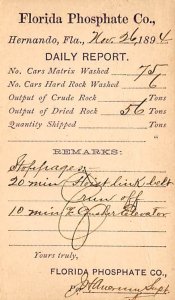 Florida Phosphate Co.,
Hernando, Fla., Nov. 26, 1894
DAILY REPORT.
No. Cars Matrix Washed 75
No. Cars Hard Rock Washed 6
Output of Crude Rock Tons
Output of Dried Rock 56 Tons
Quantity Shipped Tons
REMARKS:
Stoppages
20 min Hoist link belt
run off
10 min Elevator
Yours truly,
FLORIDA PHOSPHATE CO.,
Supt.